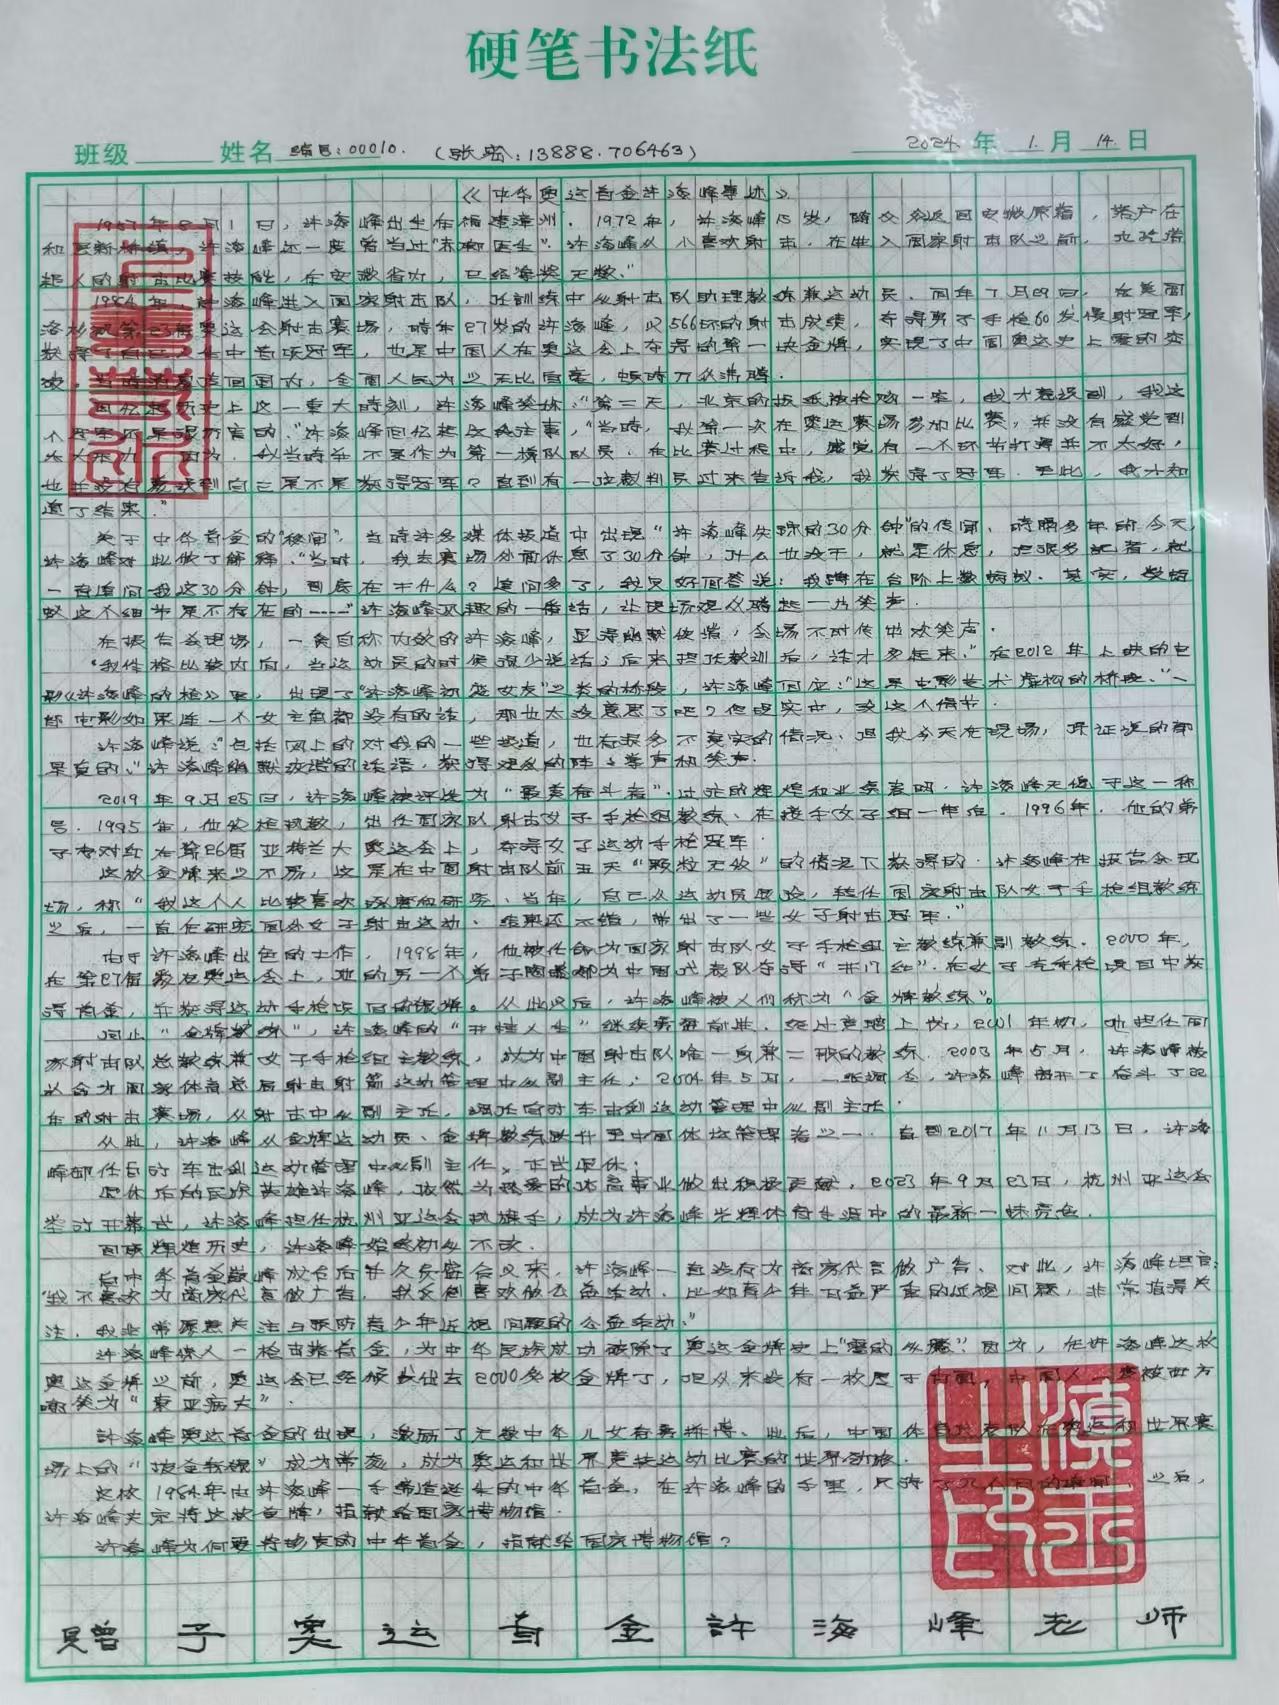 硬笔书法纸
班级 姓名 编号:00010. (张密:13888.706463) 2024年1月14日
《中华奥运首金许海峰事迹》
1957年8月1日,许海峰出生在福建漳州.1972年,许海峰15岁,随父母返回安徽原籍,落户在
和县新桥镇,许海峰还一度曾当过"赤脚医生".许海峰从小喜欢射击.在进入国家射击队之前,
起人的射击比赛技能,在安徽省内,已经得奖无数."
1984年,许海峰进入国家射击队,在训练中从射击队助理教练兼运动员.同年7月29日,在美国
洛杉矶第23届奥运会射击赛场,时年27岁的许海峰,以566环的射击成绩,夺得男子手枪60发慢射冠军,
也是中国人在奥运会上夺得的第一块金牌,实现了中国奥运史上零的突
破.当消息传回国内,全国人民为之无比自豪,顿时万众沸腾.
回忆起历史上这一重大时刻,许海峰笑称:"第二天,北京的报纸被抢购一空,我才意识到,我这
个冠军还是很厉害的."许海峰回忆起这段往事,"当时,我第一次在奥运赛场参加比赛,并没有感觉到
太大压力.因为,我当时并不是作为第一梯队队员.在比赛过程中,感觉有一个环节打得并不太好,
也并没有意识到自己是不是获得冠军?直到有一位裁判员过来告诉我,我获得了冠军.至此,我才知
道了结果."
关于中华首金的"秘闻",当时许多媒体报道中出现"许海峰失踪的30分钟"的传闻.时隔多年的今天,
许海峰对此做了解释."当时,我去赛场外面休息了30分钟,什么也没干,就是休息,但很多记者,就
一直追问我这30分钟,到底在干什么?追问多了,我只好回答说:我蹲在台阶上数蚂蚁.其实,数蚂
蚁这个细节是不存在的……"许海峰风趣的一番话,让现场观众腾起一片笑声.
在报告会现场,一贯自称内敛的许海峰,显得幽默俊谐,会场不时传出欢笑声.
"我性格比较内向,当运动员的时候很少说话;后来担任教训后,话才多起来."在2012年上映的电
影《许海峰的枪》里,出现了"许海峰初恋女友"之类的桥段,许海峰回应:"这是电影艺术虚构的桥段."一
部电影如果连一个女主角都没有的话,那也太没意思了吧?但现实中,没这个情节.
许海峰说:"包括网上的对我的一些报道,也有很多不真实的情况.但我今天在现场,保证说的都
是真的."许海峰幽默诙谐的话语,获得观众的阵阵掌声和笑声.
2019年9月25日,许海峰被评选为"最美奋斗者".过往的辉煌和业绩表明,许海峰无愧于这一称
号.1995年,他弃枪执教,出任国家队射击女子手枪组教练.在接手女子组一年后.1996年.他的弟
子李对红在第26届亚特兰大奥运会上,夺得女子运动手枪冠军.
这枚金牌来之不易,这是在中国射击队前五天"颗粒无收"的情况下获得的.许海峰在报告会现
场,称"我这个人比较喜欢琢磨和研究.当年,自己从运动员退役,转任国家射击队女子手枪组教练
之后,一直在研究国外女子射击运动.结果还不错,带出了一些女子射击冠军."
由于许海峰出色的工作,1998年,他被任命为国家射击队女子手枪组主教练兼副教练.2000年,
在第27届悉尼奥运会上,他的另一个弟子陶璐娜为中国代表队夺得"开门红".在女子气手枪项目中获
得首金,并获得运动手枪项目的银牌.从此以后,许海峰被人们称为"金牌教练".
冠上"金牌教练",许海峰的"开挂人生"继续奋勇前进.经过竞聘上岗,2001年初,他担任国
家射击队总教练兼女子手枪组主教练,成为中国射击队唯一身兼二职的教练.2003年5月,许海峰被
任命为国家体育总局射击射箭运动管理中心副主任.2004年5月,一纸调令,许海峰离开了奋斗了22
年的射击赛场,从射击中心副主任,调任自行车击剑运动管理中心副主任.
从此,许海峰从金牌运动员、金牌教练跃升至中国体坛管理者之一.直到2017年11月13日,许海
峰卸任自行车击剑运动管理中心副主任、正式退休;
退休后的民族英雄许海峰,依然为热爱的体育事业做出积极贡献,2023年9月23日,杭州亚运会
举行开幕式,许海峰担任杭州亚运会执旗手,成为许海峰光辉体育生涯中的最新一抹亮色.
回顾辉煌历史,许海峰始终初心不改.
自中华首金巅峰成名后并久负盛名以来,许海峰一直没有为商家代言做广告.对此,许海峰坦言:
"我不喜欢为商家代言做广告.我反倒喜欢做公益活动.比如青少年日益严重的近视问题,非常值得关
注.我非常愿意关注与预防青少年近视问题的公益活动."
许海峰惊人一枪击落首金,为中华民族成功破除了奥运金牌史上"零的纪录"因为,在许海峰这枚
奥运金牌之前,奥运会已经颁发出去2000多枚金牌了,但从未没有一枚属于中国,中国人一直被西方
嘲笑为"东亚病夫".
许海峰奥运首金的出现,激励了无数中华儿女奋勇拼搏.此后,中国体育代表队在奥运和世界赛
场上的"披金斩银"成为常态,成为奥运和世界竞技运动比赛的世界劲旅.
这枚1984年由许海峰一手缔造进来的中华首金,在许海峰的手里,只待了几个月的时间.之后,
许海峰决定将这枚首牌,捐献给国家博物馆.
许海峰为何要将珍贵的中华首金,捐献给国家博物馆?
赠予奥运首金許海峰老师